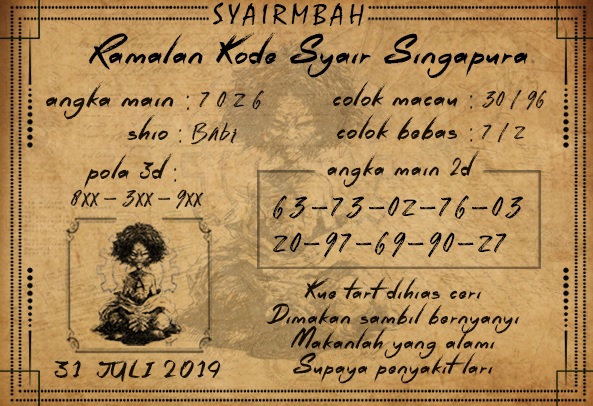 SYAIRMBAH
Ramalan Kode Syair Singapura
angka main : 7026
colok macau : 30 / 96
shio : BAbi
colok bebas : 7 / 2
pola 3d :
8xx - 3xx - 9xx
angka main 2d
63-73-02-76-03
20-97-69-90-27
31 JULI 2019
Kue tart dihias ceri
Dimakan sambil bernyanyi
Makanlah yang alami
Supaya penyakit lari